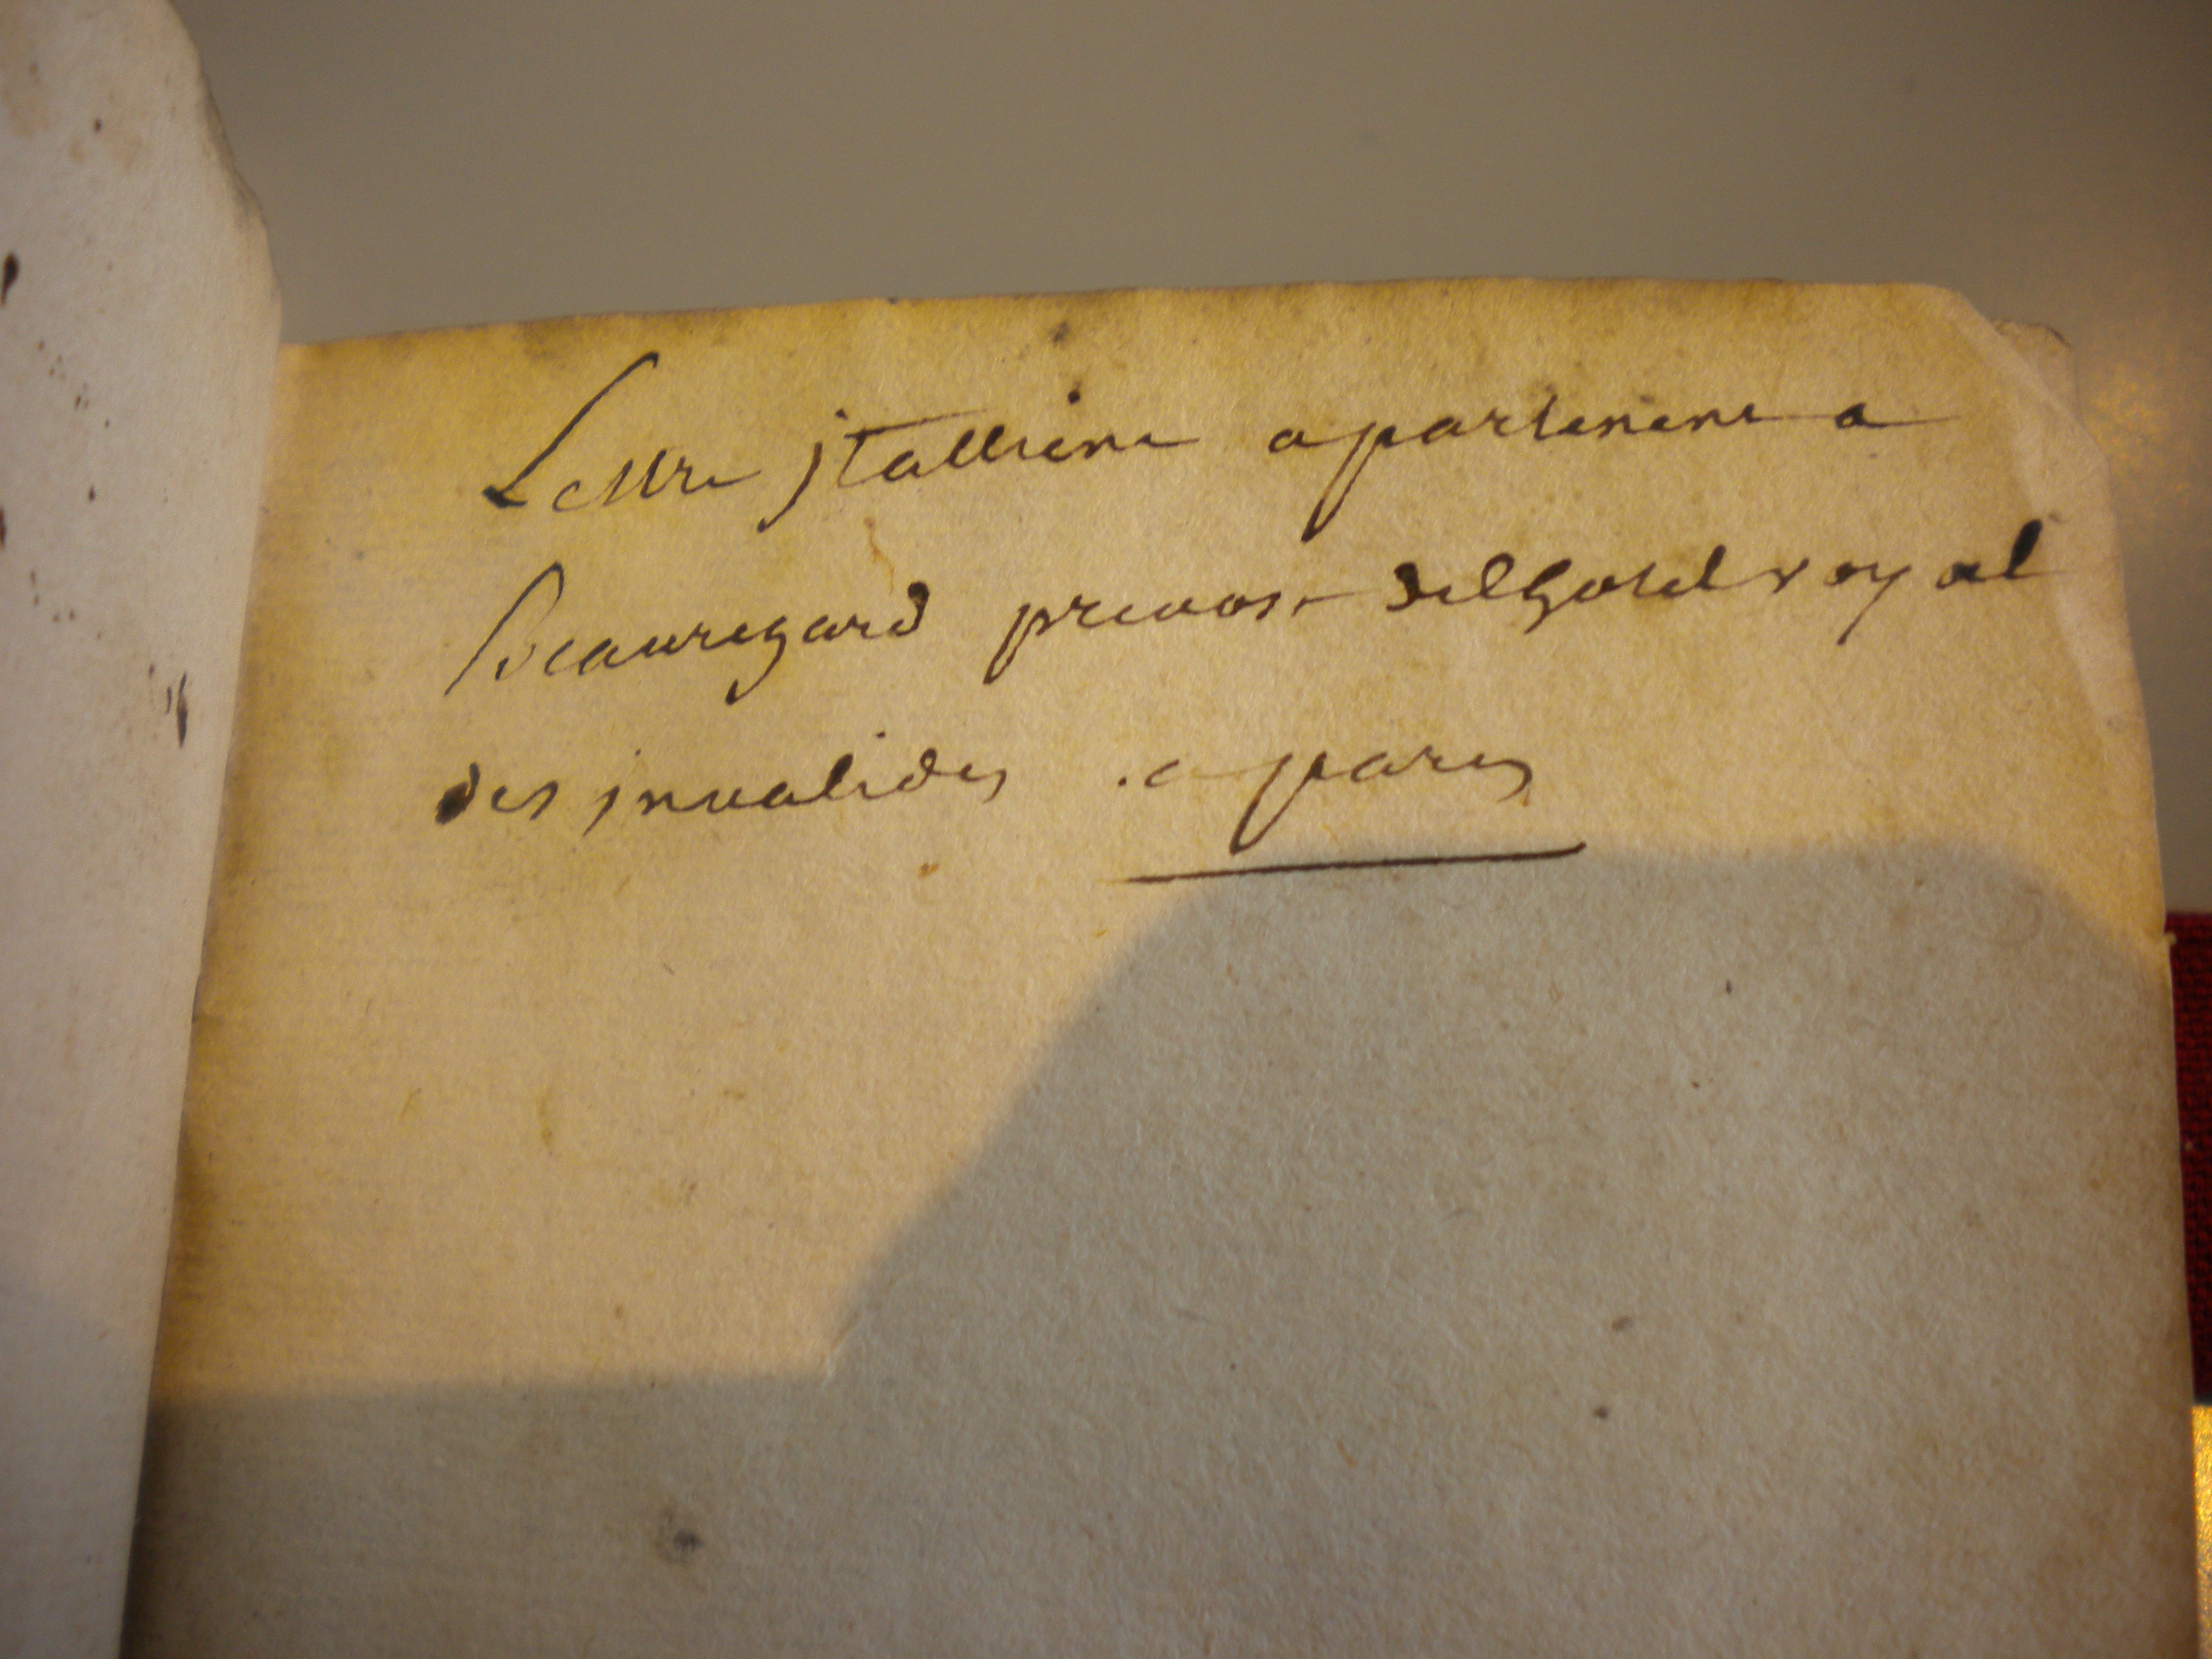 Lettre jtalliene apartenent a
beauregard preuost delhotel royal
des jnualides a paris